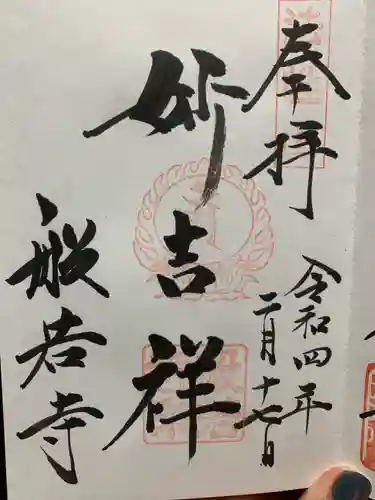 奉拝
令和四年
二月十七日
妙吉祥
般若寺